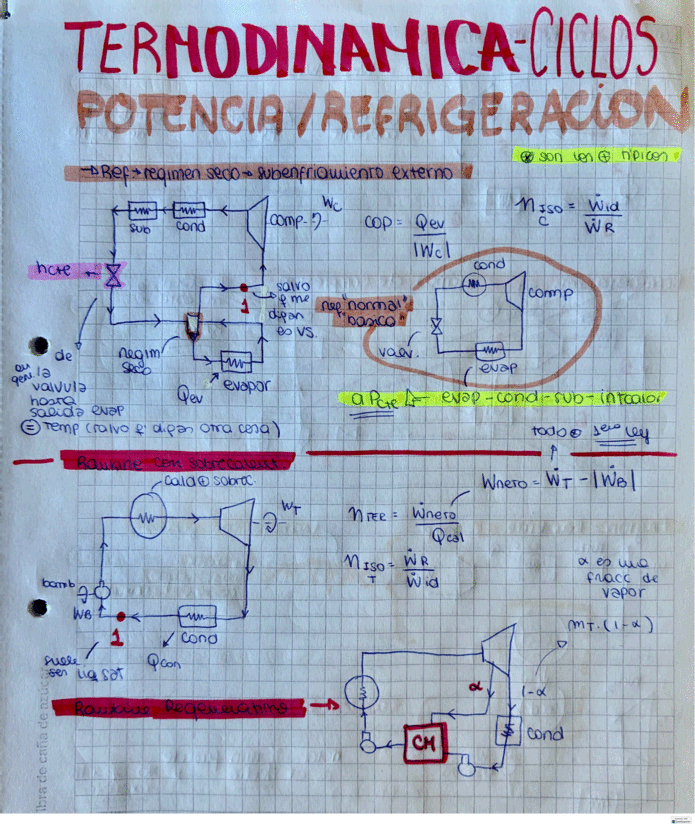 TERMODINAMICA-CICLOS
POTENCIA/REFRIGERACION
⊛ son los ⊕ típicos
→ Ref → regimen seco → subenfriamiento externo
Wc
sub
cond
comp
COP = Qev / |Wc|
η ISO C = Ẇid / ẆR
hcte
1
salvo
q me
digan
es VS.
regim
seco
Qev
evapor
ref "normal"
"basico"
cond
comp
valv.
evap
de
la
valvula
hasta
salida evap
= Temp (salvo q' digan otra cosa)
a Pcte
evap-cond-sub-intcalor
todo
1era ley
Rankine con sobrecalent
cald ⊕ sobrec
WT
Wneto = ẆT - |ẆB|
ηTER = Ẇneto / Qcal
η ISO T = ẆR / Ẇid
α es una
fracc de
vapor
bomb
WB
1
cond
Qcon
suele
ser liq sat
mT.(1-α)
Rankine Regenerativo
α
1-α
CM
cond
ibra de caña de azúcar